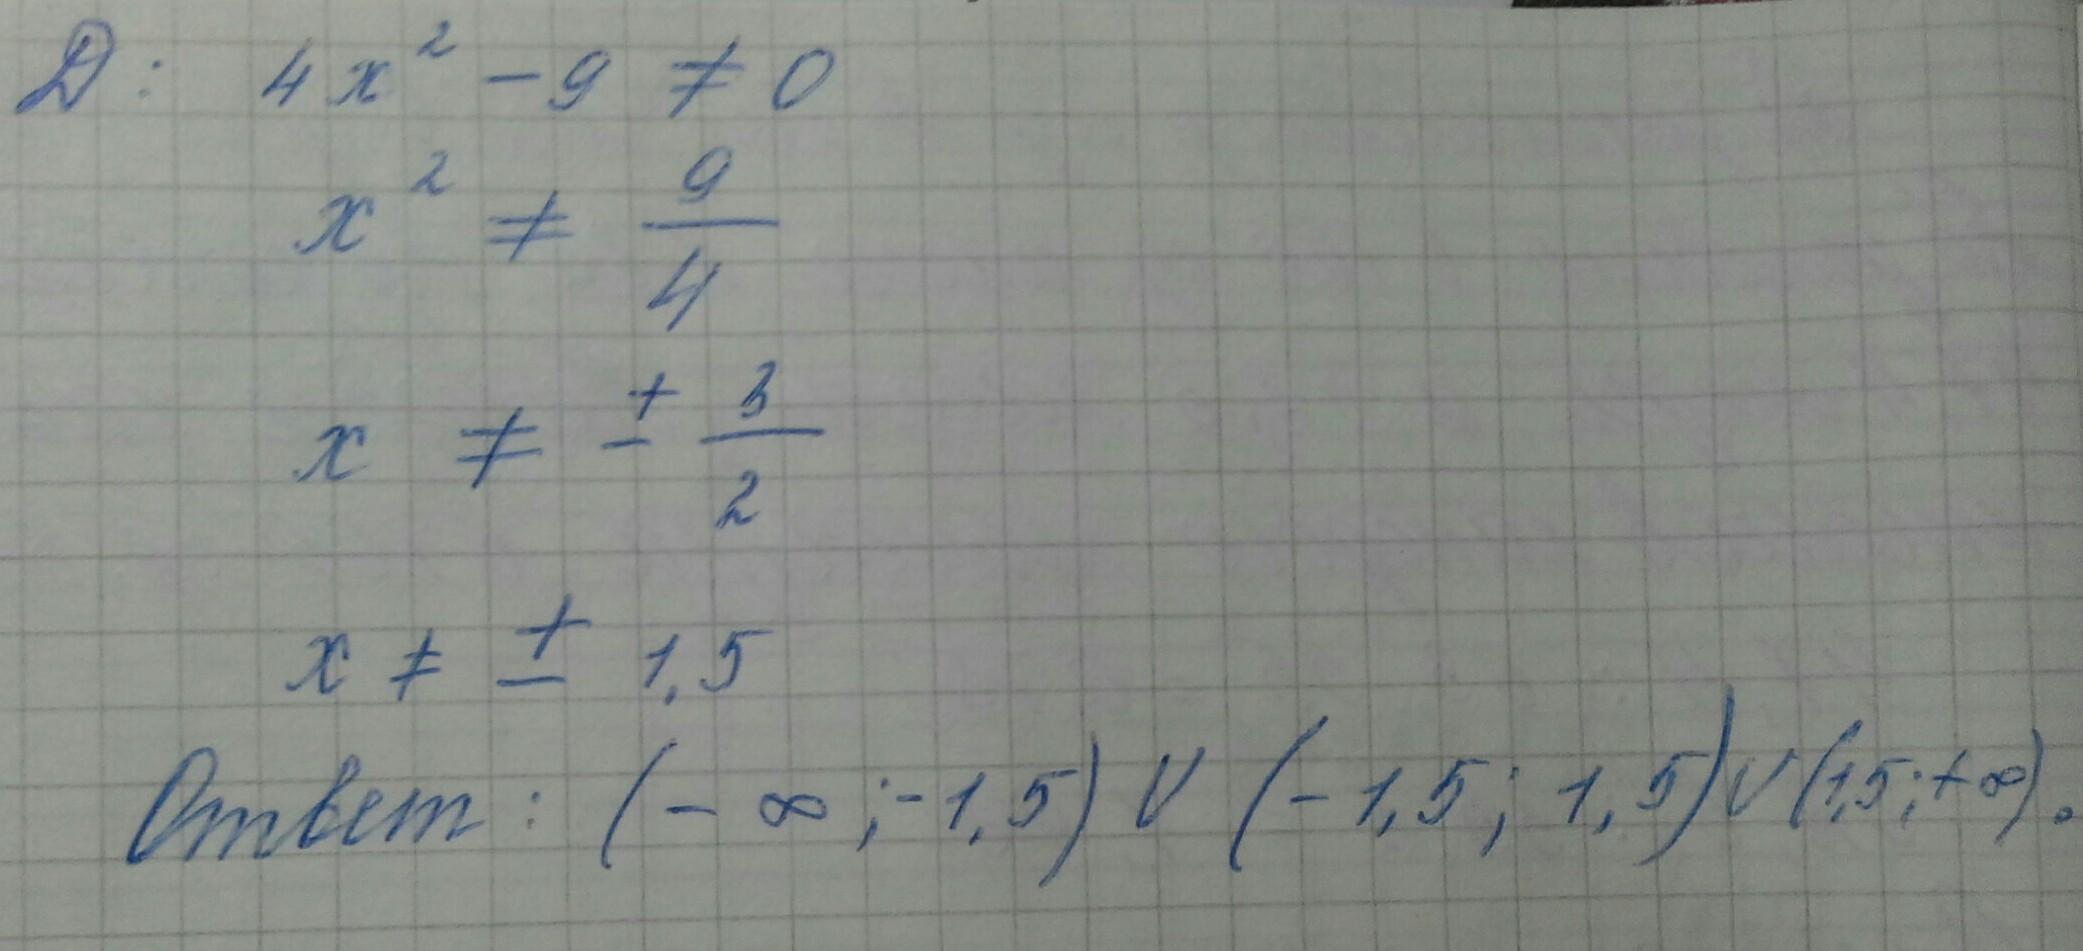 D: 4x² - 9 ≠ 0
x² ≠ 9/4
x ≠ ± 3/2
x ≠ ± 1,5
Ответ: (-∞; -1,5) ∪ (-1,5; 1,5) ∪ (1,5; +∞).